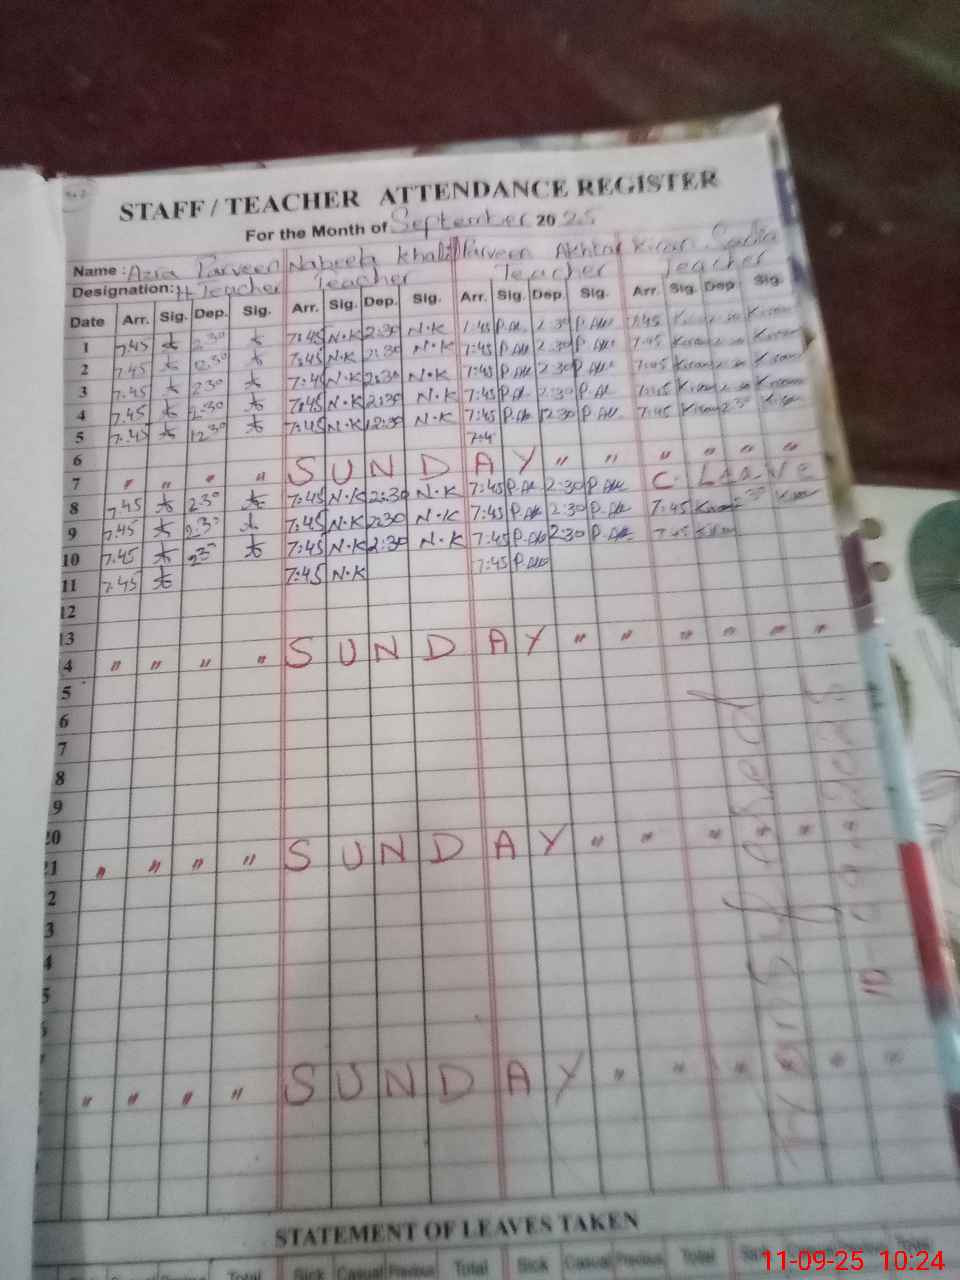 STAFF / TEACHER ATTENDANCE REGISTER
For the Month of September 2025
Name : Azra Parveen Nabeela Khalil Parveen Akhtar Kiran Sadia
Designation: H Teacher Teacher Teacher Teacher
Date Arr. Sig. Dep. Sig. Arr. Sig. Dep. Sig. Arr. Sig. Dep. Sig. Arr. Sig. Dep Sig.
1 7.45 2:30 7:45 N.K 2:30 N.K 7:45 P.Ak 2:30 P.Ak 7:45 Kiran Kiran
2 7.45 2:30 7:45 N.K 2:30 N.K 7:45 P.Ak 2:30 P.Ak 7:45 Kiran Kiran
3 7.45 2:30 7:45 N.K 2:30 N.K 7:45 P.Ak 2:30 P.Ak 7:45 Kiran Kiran
4 7.45 2:30 7:45 N.K 2:30 N.K 7:45 P.Ak 2:30 P.Ak 7:45 Kiran Kiran
5 7.45 12:30 7:45 N.K 12:30 N.K 7:45 P.Ak 12:30 P.Ak 7:45 Kiran Kiran
6 7:4
7 " " " " S U N D A Y " " " " " "
8 7.45 2:30 7:45 N.K 2:30 N.K 7:45 P.Ak 2:30 P.Ak C. Leave
9 7.45 2:30 7:45 N.K 2:30 N.K 7:45 P.Ak 2:30 P.Ak 7:45 Kiran
10 7.45 7:45 N.K 2:30 N.K 7:45 P.Ak 2:30 P.Ak 7:45 Kiran
11 7.45 7:45 N.K 7:45 P.Ak
12
13
4 " " " " S U N D A Y " " " " " "
5
6
7
8
9
20
21 " " " " S U N D A Y " " " " "
2
3
4
5
" " " " S U N D A Y " " " " "
STATEMENT OF LEAVES TAKEN
Total Sick Casual Previous Total Sick Casual Previous Total Sick Casual Previous Total
11-09-25 10:24